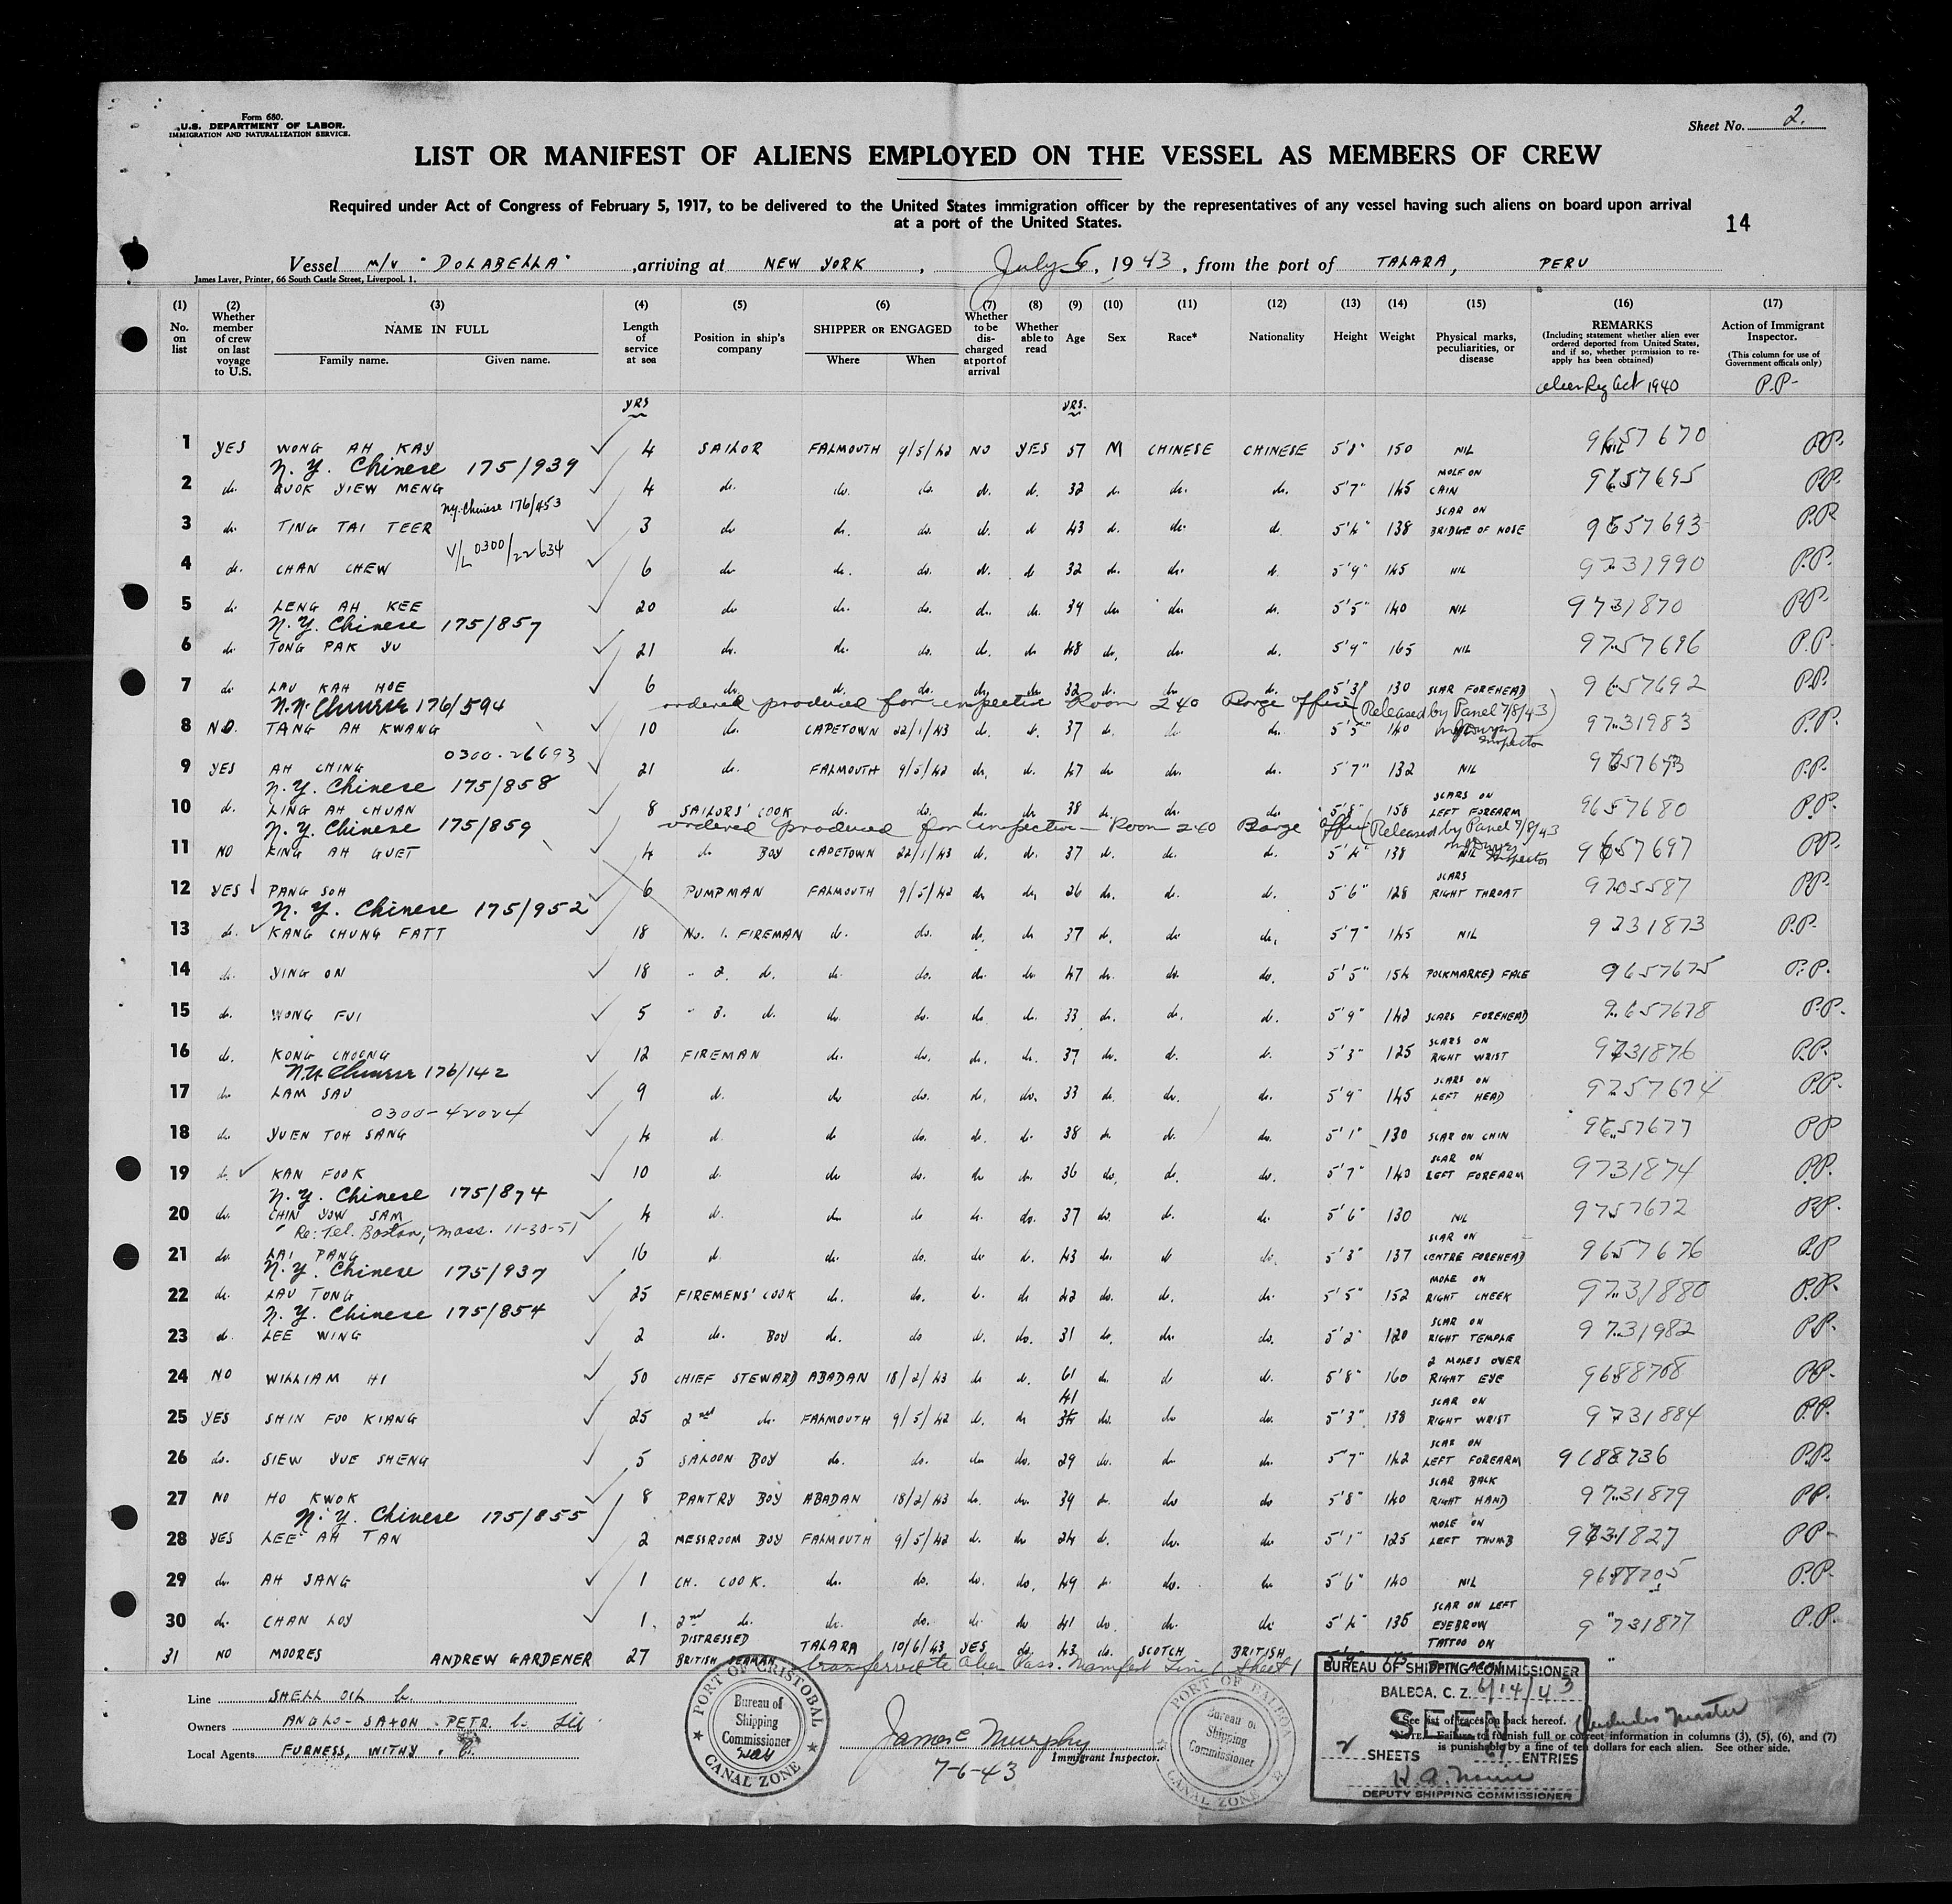 Form 680.
U.S. DEPARTMENT OF LABOR.
IMMIGRATION AND NATURALIZATION SERVICE.
Sheet No. 2.
LIST OR MANIFEST OF ALIENS EMPLOYED ON THE VESSEL AS MEMBERS OF CREW
Required under Act of Congress of February 5, 1917, to be delivered to the United States immigration officer by the representatives of any vessel having such aliens on board upon arrival
at a port of the United States.
14
Vessel M/V "DOLABELLA" ,arriving at NEW YORK , July 6, 1943, from the port of TALARA, PERU
James Laver, Printer, 66 South Castle Street, Liverpool. 1.
(1) No. on list (2) Whether member of crew on last voyage to U.S. (3) NAME IN FULL Family name. Given name. (4) Length of service at sea (5) Position in ship's company (6) SHIPPER OR ENGAGED Where When (7) Whether to be discharged at port of arrival (8) Whether able to read (9) Age (10) Sex (11) Race* (12) Nationality (13) Height (14) Weight (15) Physical marks, peculiarities, or disease (16) REMARKS (Including statement whether alien ever ordered deported from United States, and if so, whether permission to re-apply has been obtained) (17) Action of Immigrant Inspector. (This column for use of Government officals only)
Alien Reg Act 1940 P.P-
YRS YRS.
1 YES WONG AH KAY 4 SAILOR FALMOUTH 9/5/42 NO YES 57 M CHINESE CHINESE 5'8" 150 NIL 9657670 P.P.
N.Y. Chinese 175/939
2 do. QUOK YIEW MENG 4 do. do. do. do. do. 32 do. do. do. 5'7" 145 MOLE ON CAIN 9657695 P.P.
N.Y. Chinese 176/453
3 do. TING TAI TEER 3 do do. do. do. do 43 do. do. do. 5'4" 138 SCAR ON BRIDGE OF NOSE 9657693 P.P.
V/L 0300/22634
4 do. CHAN CHEW 6 do do. do. do. do 32 do. do. do. 5'9" 145 NIL 9731990 P.P.
5 do. LENG AH KEE 20 do do. do. do. do. 39 do do. do. 5'5" 140 NIL 9731870 P.P.
N.Y. Chinese 175/857
6 do. TONG PAK YU 21 do. do. do. do. do 48 do. do. do. 5'9" 165 NIL 9757696 P.P.
7 do. LAU KAH HOE 6 do. do. do. do. do. 32 do. do. do. 5'3" 130 SCAR FOREHEAD 9657692 P.P.
N.Y. Chinese 176/594 ordered produced for inspection Room 240 Barge Office (Released by Panel 7/8/43) Inspector
8 NO. TANG AH KWANG 10 do. CAPETOWN 22/1/43 do. do. 37 do. do do. 5'5" 140 9731983 P.P.
0300-26693
9 YES AH CHING 21 do. FALMOUTH 9/5/42 do. do. 47 do do. do. 5'7" 132 NIL 9657693 P.P.
N.Y. Chinese 175/858
10 do. LING AH CHUAN 8 SAILORS' COOK do. do. do. do. 38 do. do. do. 5'8" 158 SCARS ON LEFT FOREARM 9657680 P.P.
N.Y. Chinese 175/859 ordered produced for inspection - Room 240 Barge Office (Released by Panel 7/8/43 Inspector
11 NO KING AH GUET 4 do BOY CAPETOWN 22/1/43 do. do. 37 do. do. do. 5'4" 138 NIL 9657697 P.P.
12 YES PANG SOH 6 PUMPMAN FALMOUTH 9/5/42 do do. 26 do. do. do. 5'6" 128 SCARS RIGHT THROAT 9705587 P.P.
N.Y. Chinese 175/952
13 do. KANG CHUNG FATT 18 No. 1. FIREMAN do. do. do. do 37 do. do do. 5'7" 145 NIL 9731873 P.P.
14 do. YING ON 18 " 2. do. do. do. do. do. 47 do. do. do. 5'5" 154 POCKMARKED FACE 9657675 P.P.
15 do. WONG FUI 5 " 3. do. do. do. do do. 33 do. do. do. 5'9" 142 SCARS FOREHEAD 9657678 P.P.
16 do. KONG CHOONG 12 FIREMAN do. do. do. do. 37 do. do. do. 5'3" 125 SCARS ON RIGHT WRIST 9731876 P.P.
N.Y. Chinese 176/142
17 do. LAM SAU 9 do. do do. do. do. 33 do. do. do. 5'9" 145 SCARS ON LEFT HEAD 9757674 P.P.
0300-42024
18 do. YUEN TOH SANG 4 do. do do. do. do. 38 do. do. do. 5'1" 130 SCAR ON CHIN 9657677 P.P
19 do. KAN FOOK 10 do. do do. do do. 36 do. do. do. 5'7" 140 SCAR ON LEFT FOREARM 9731874 P.P.
N.Y. Chinese 175/874
20 do. CHIN YOW SAM 4 do. do do do. do. 37 do. do. do. 5'6" 130 NIL 9757672 P.P.
" Re: Tel. Boston, Mass. 11-30-51
21 do. LAI PANG 16 do. do. do. do do. 43 do. do do. 5'3" 137 SCAR ON CENTRE FOREHEAD 9657676 P.P
N.Y. Chinese 175/937
22 do. LAU TONG 25 FIREMENS' COOK do. do. do. do 42 do. do. do. 5'5" 152 MOLE ON RIGHT CHEEK 9731880 P.P.
N.Y. Chinese 175/854
23 do. LEE WING 2 do. BOY do. do do. do. 31 do. do. do. 5'2" 120 SCAR ON RIGHT TEMPLE 9731982 P.P.
24 NO WILLIAM HI 50 CHIEF STEWARD ABADAN 18/2/43 do do. 61 do. do do. 5'8" 160 2 MOLES OVER RIGHT EYE 9688708 P.P.
25 YES SHIN FOO KIANG 25 2nd do. FALMOUTH 9/5/42 do. do 41 do. do do. 5'3" 138 SCAR ON RIGHT WRIST 9731884 P.P.
26 do. SIEW YUE SHENG 5 SALOON BOY do. do. do do. 29 do. do do. 5'7" 142 SCAR ON LEFT FOREARM 9688736 P.P.
27 NO HO KWOK 8 PANTRY BOY ABADAN 18/2/43 do. do. 39 do do do 5'8" 140 SCAR BACK RIGHT HAND 9731879 P.P.
N.Y. Chinese 175/855
28 YES LEE AH TAN 2 MESSROOM BOY FALMOUTH 9/5/42 do. do 24 do. do. do 5'1" 125 MOLE ON LEFT THUMB 9731827 P.P-
29 do. AH SANG 1 CH. COOK. do. do. do. do. 49 do do. do 5'6" 140 NIL 9688705 P.P.
30 do. CHAN LOY 1. 2nd do. do. do. do. do 41 do. do. do. 5'4" 135 SCAR ON LEFT EYEBROW 9731877 P.P.
31 NO MOORES ANDREW GARDENER 27 DISTRESSED BRITISH SEAMAN TALARA 10/6/43 YES do. 43 do. SCOTCH BRITISH TATTOO ON BOTH ARMS "
transferred to Alien Pass. Manifest Line 1 Sheet 1
Line SHELL OIL Co.
Owners ANGLO-SAXON PETR. Co. Ltd
Local Agents FURNESS, WITHY & Co.
PORT OF CRISTOBAL
Bureau of Shipping Commissioner
CANAL ZONE
James Murphy
Immigrant Inspector.
7-6-43
PORT OF BALBOA
Bureau of Shipping Commissioner
CANAL ZONE
BUREAU OF SHIPPING COMMISSIONER
BALBOA, C. Z. 6/14/43
SEEN
2 SHEETS 61 ENTRIES
DEPUTY SHIPPING COMMISSIONER
Includes Master
*See list of races on back hereof.
NOTE.—Failure to furnish full or correct information in columns (3), (5), (6), and (7)
is punishable by a fine of ten dollars for each alien. See other side.